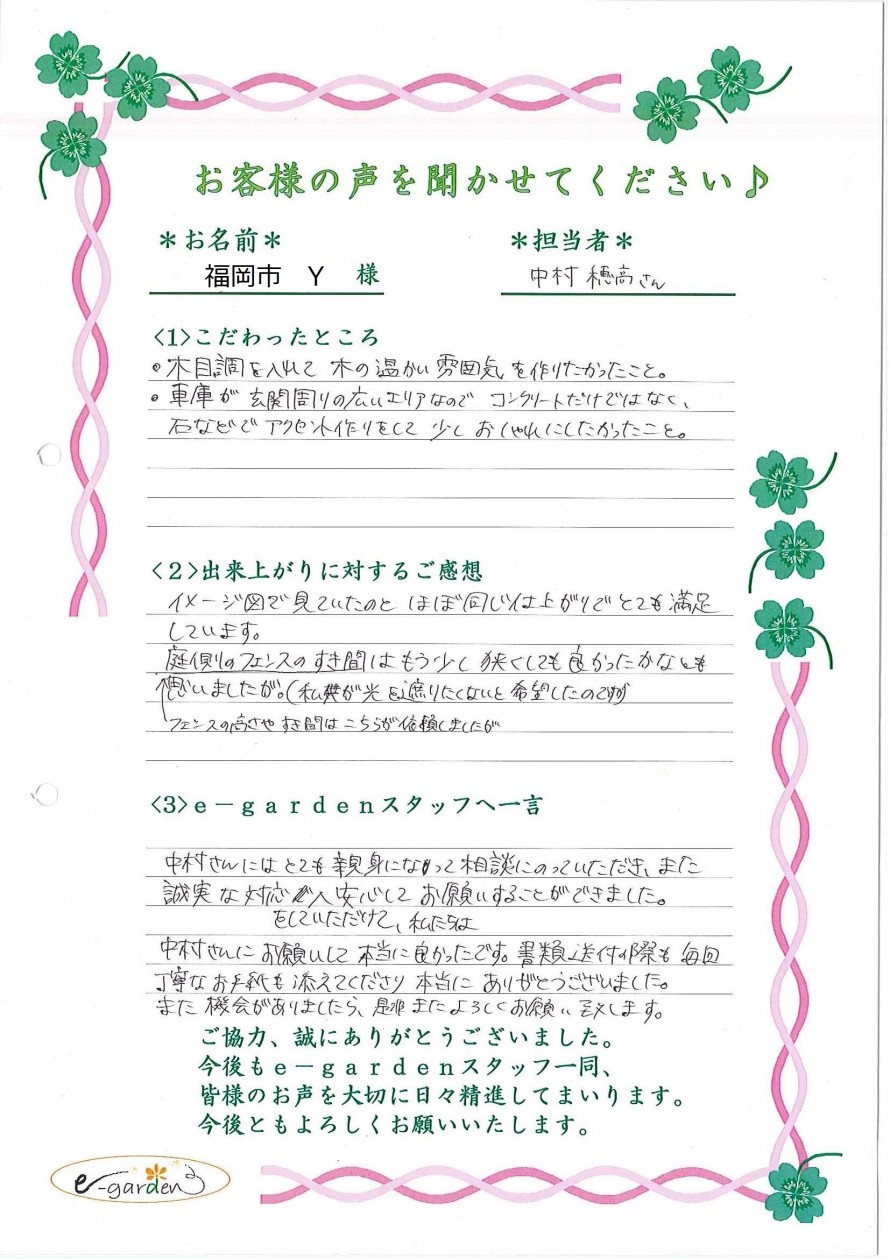 お客様の声を聞かせてください♪
＊お名前＊
＊担当者＊
福岡市　Y　様
中村 穂高さん
<1>こだわったところ
・木目調を入れて 木の温かい雰囲気を作りたかったこと。
・車庫が玄関周りの広いエリアなので コンクリートだけではなく、
石などで アクセント作りをして 少し おしゃれにしたかったこと。
<2>出来上がりに対するご感想
イメージ図で見ていたのと ほぼ同じ仕上がりでとても満足
しています。
庭側のフェンスのすき間は もう少し 狭くしても良かったかなとも
思いましたが。(私共が光を遮りたくないと希望したのですが
フェンスの高さや すき間は こちらが依頼しましたが
<3>e－gardenスタッフへ一言
中村さんには とても親身になって相談にのっていただき、また
誠実な対応 安心して お願いすることができました。
をしていただけて、私たちは
中村さんに お願いして 本当に良かったです。書類送付の際も 毎回
丁寧なお手紙も添えてくださり 本当に ありがとうございました。
また 機会がありましたら、是非 またよろしくお願い致します。
ご協力、誠にありがとうございました。
今後もe－gardenスタッフ一同、
皆様のお声を大切に日々精進してまいります。
今後ともよろしくお願いいたします。
e-garden